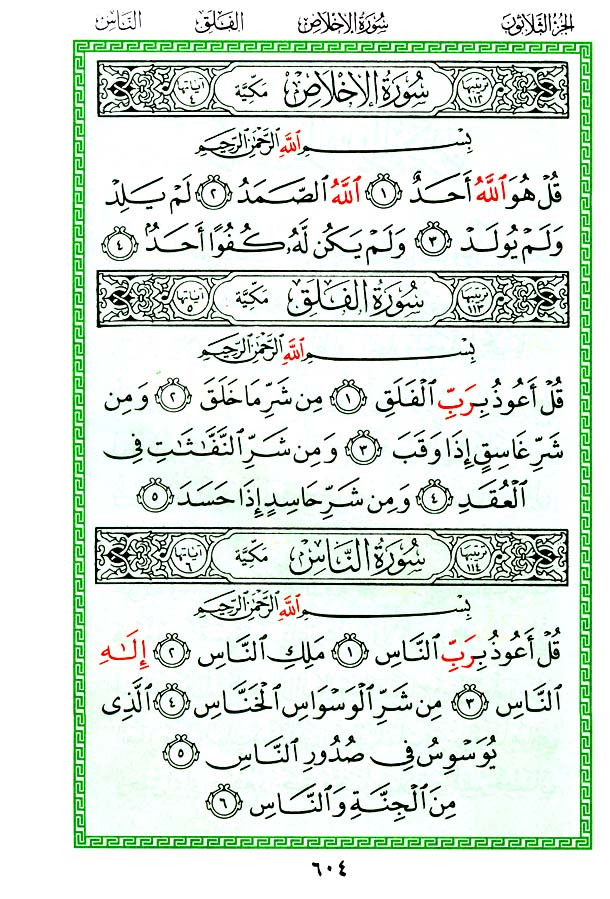 الجزء الثلاثون سورة الإخلاص الفلق الناس
ترتيبها ١١٢ سُورَةُ الإِخْلَاصِ مَكِّيَّة آياتها ٤
بِسْمِ ٱللَّهِ ٱلرَّحْمَٰنِ ٱلرَّحِيمِ
قُلْ هُوَ ٱللَّهُ أَحَدٌ ١ ٱللَّهُ ٱلصَّمَدُ ٢ لَمْ يَلِدْ
وَلَمْ يُولَدْ ٣ وَلَمْ يَكُن لَّهُۥ كُفُوًا أَحَدٌۢ ٤
ترتيبها ١١٣ سُورَةُ الْفَلَقِ مَكِّيَّة آياتها ٥
بِسْمِ ٱللَّهِ ٱلرَّحْمَٰنِ ٱلرَّحِيمِ
قُلْ أَعُوذُ بِرَبِّ ٱلْفَلَقِ ١ مِن شَرِّ مَا خَلَقَ ٢ وَمِن
شَرِّ غَاسِقٍ إِذَا وَقَبَ ٣ وَمِن شَرِّ ٱلنَّفَّٰثَٰتِ فِى
ٱلْعُقَدِ ٤ وَمِن شَرِّ حَاسِدٍ إِذَا حَسَدَ ٥
ترتيبها ١١٤ سُورَةُ النَّاسِ مَكِّيَّة آياتها ٦
بِسْمِ ٱللَّهِ ٱلرَّحْمَٰنِ ٱلرَّحِيمِ
قُلْ أَعُوذُ بِرَبِّ ٱلنَّاسِ ١ مَلِكِ ٱلنَّاسِ ٢ إِلَٰهِ
ٱلنَّاسِ ٣ مِن شَرِّ ٱلْوَسْوَاسِ ٱلْخَنَّاسِ ٤ ٱلَّذِى
يُوَسْوِسُ فِى صُدُورِ ٱلنَّاسِ ٥
مِنَ ٱلْجِنَّةِ وَٱلنَّاسِ ٦
٦٠٤